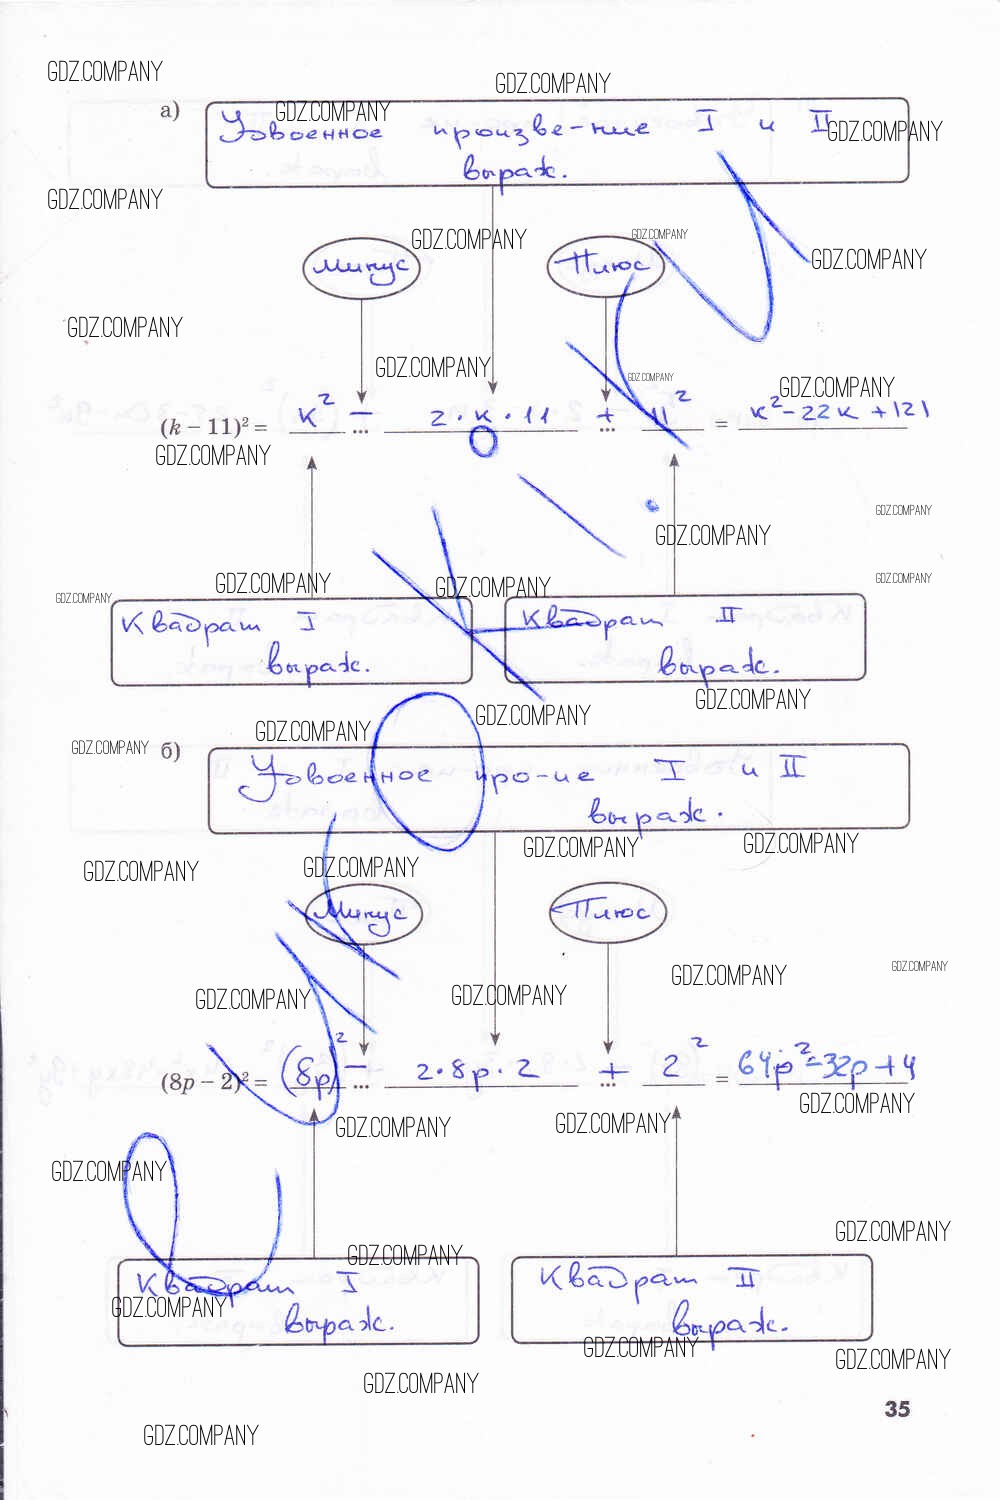 GDZ.COMPANY
GDZ.COMPANY
а)
GDZ.COMPANY
Удвоенное произве-ние I и II
GDZ.COMPANY
выраж.
GDZ.COMPANY
GDZ.COMPANY
GDZ.COMPANY
Минус
Плюс
GDZ.COMPANY
GDZ.COMPANY
GDZ.COMPANY
GDZ.COMPANY
GDZ.COMPANY
(k – 11)² = к² – ... 2·к·11 + ... 11² = к²-22к+121
GDZ.COMPANY
GDZ.COMPANY
GDZ.COMPANY
GDZ.COMPANY
GDZ.COMPANY
GDZ.COMPANY
GDZ.COMPANY
Квадрат I
выраж.
Квадрат II
выраж.
GDZ.COMPANY
GDZ.COMPANY
GDZ.COMPANY
GDZ.COMPANY
б)
Удвоенное про-ие I и II
выраж.
GDZ.COMPANY
GDZ.COMPANY
GDZ.COMPANY
GDZ.COMPANY
Минус
Плюс
GDZ.COMPANY
GDZ.COMPANY
GDZ.COMPANY
GDZ.COMPANY
(8p – 2)² = (8p)² – ... 2·8p·2 + ... 2² = 64p²-32p+4
GDZ.COMPANY
GDZ.COMPANY
GDZ.COMPANY
GDZ.COMPANY
GDZ.COMPANY
GDZ.COMPANY
Квадрат I
выраж.
Квадрат II
выраж.
GDZ.COMPANY
GDZ.COMPANY
GDZ.COMPANY
GDZ.COMPANY
35
GDZ.COMPANY